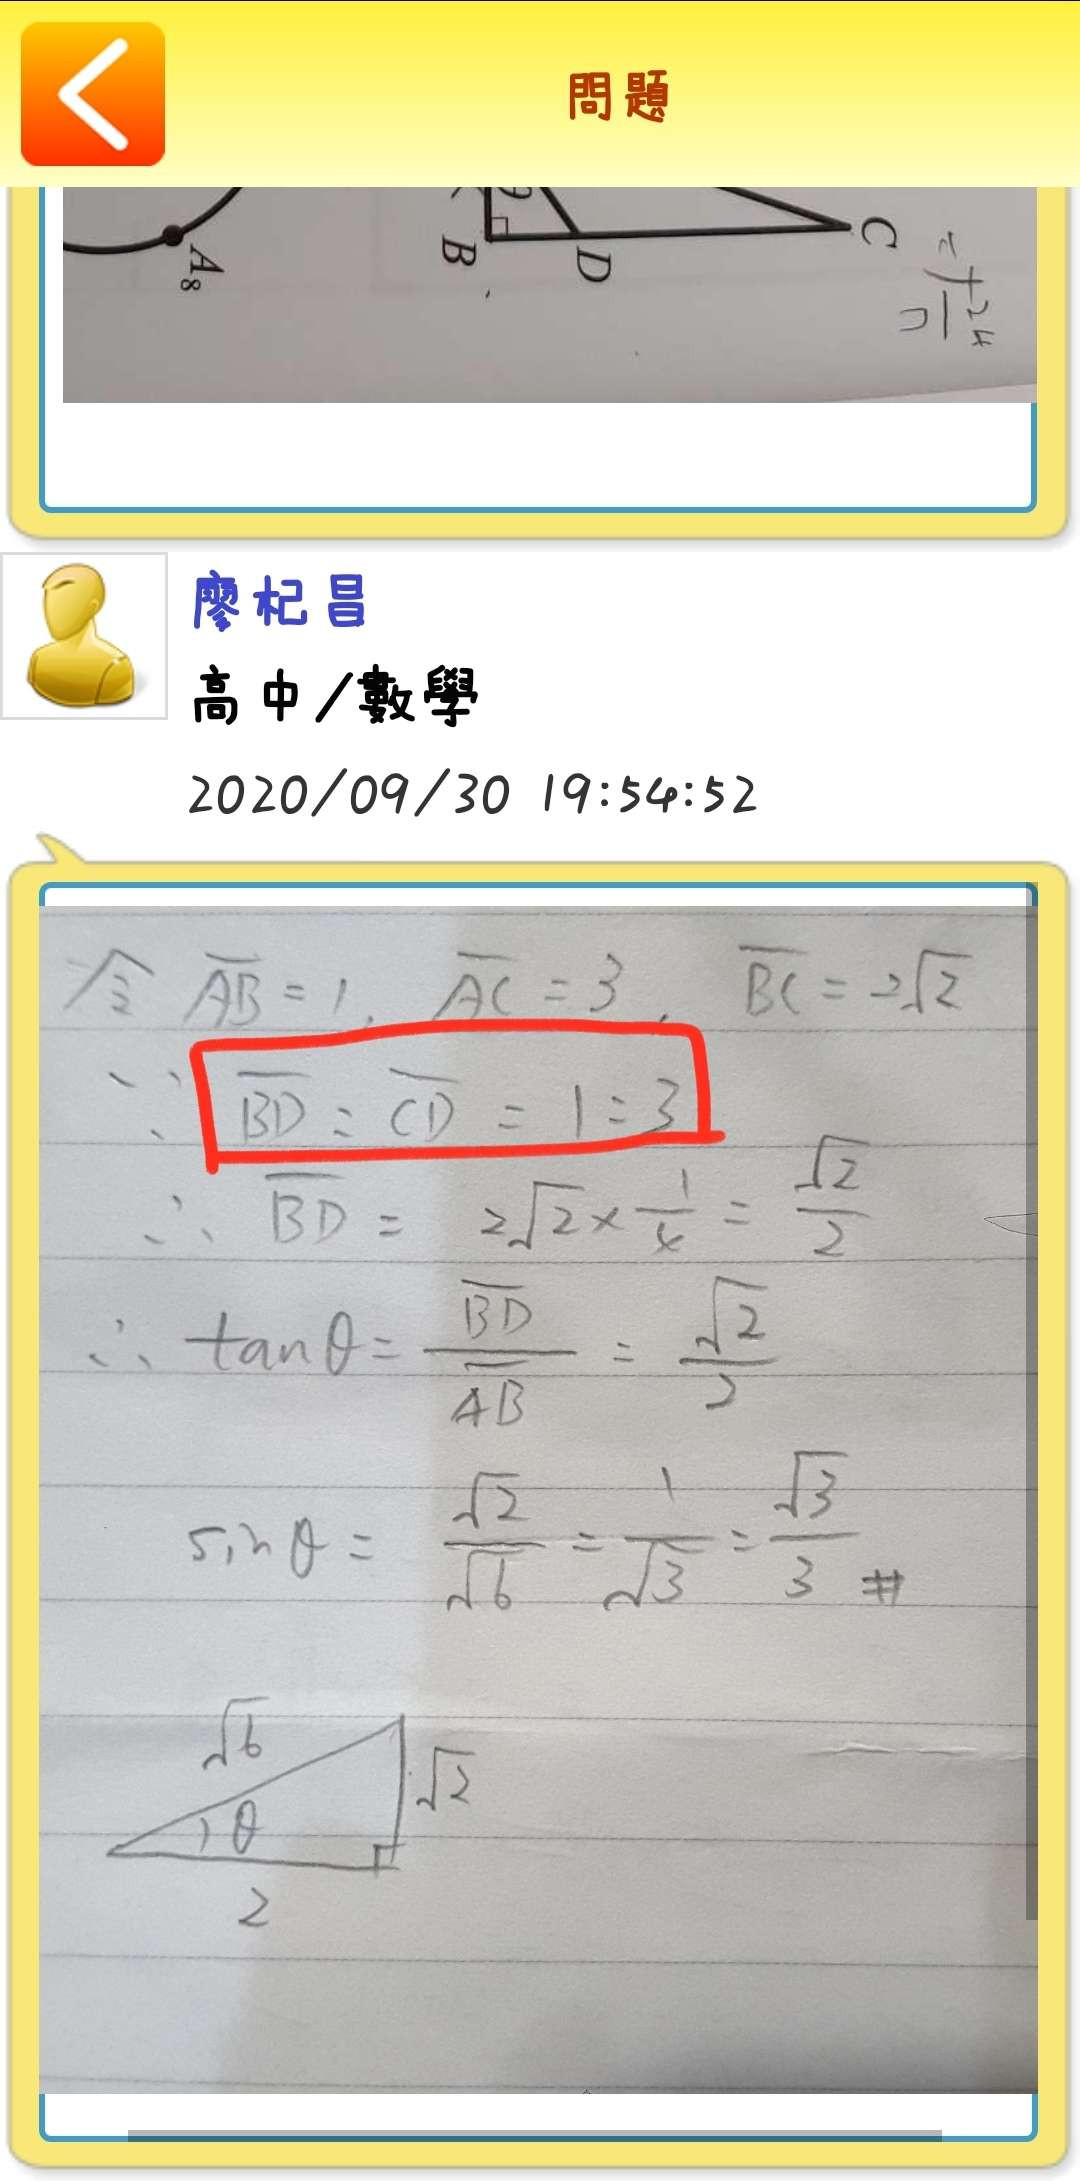 問題
A₈
B
θ
D
C
廖杞昌
高中/數學
2020/09/30 19:54:52
令 AB = 1, AC = 3, BC = 2√2
∵ BD : CD = 1 : 3
∴ BD = 2√2 × 1/4 = √2/2
∴ tanθ = BD/AB = √2/2
sinθ = √2/√6 = 1/√3 = √3/3 #
√6
√2
θ
2